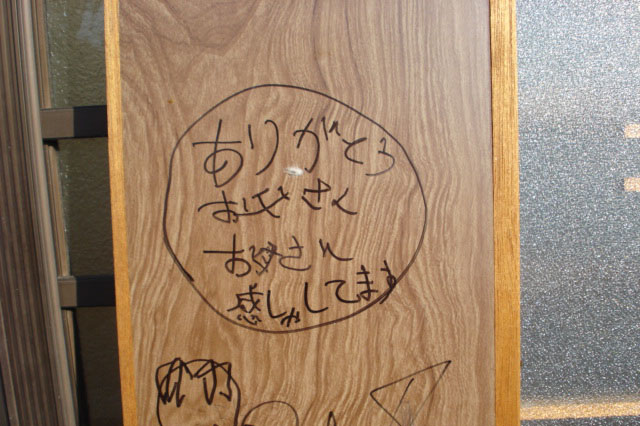 ありがとう
お父さん
お母さん
感しゃしてます